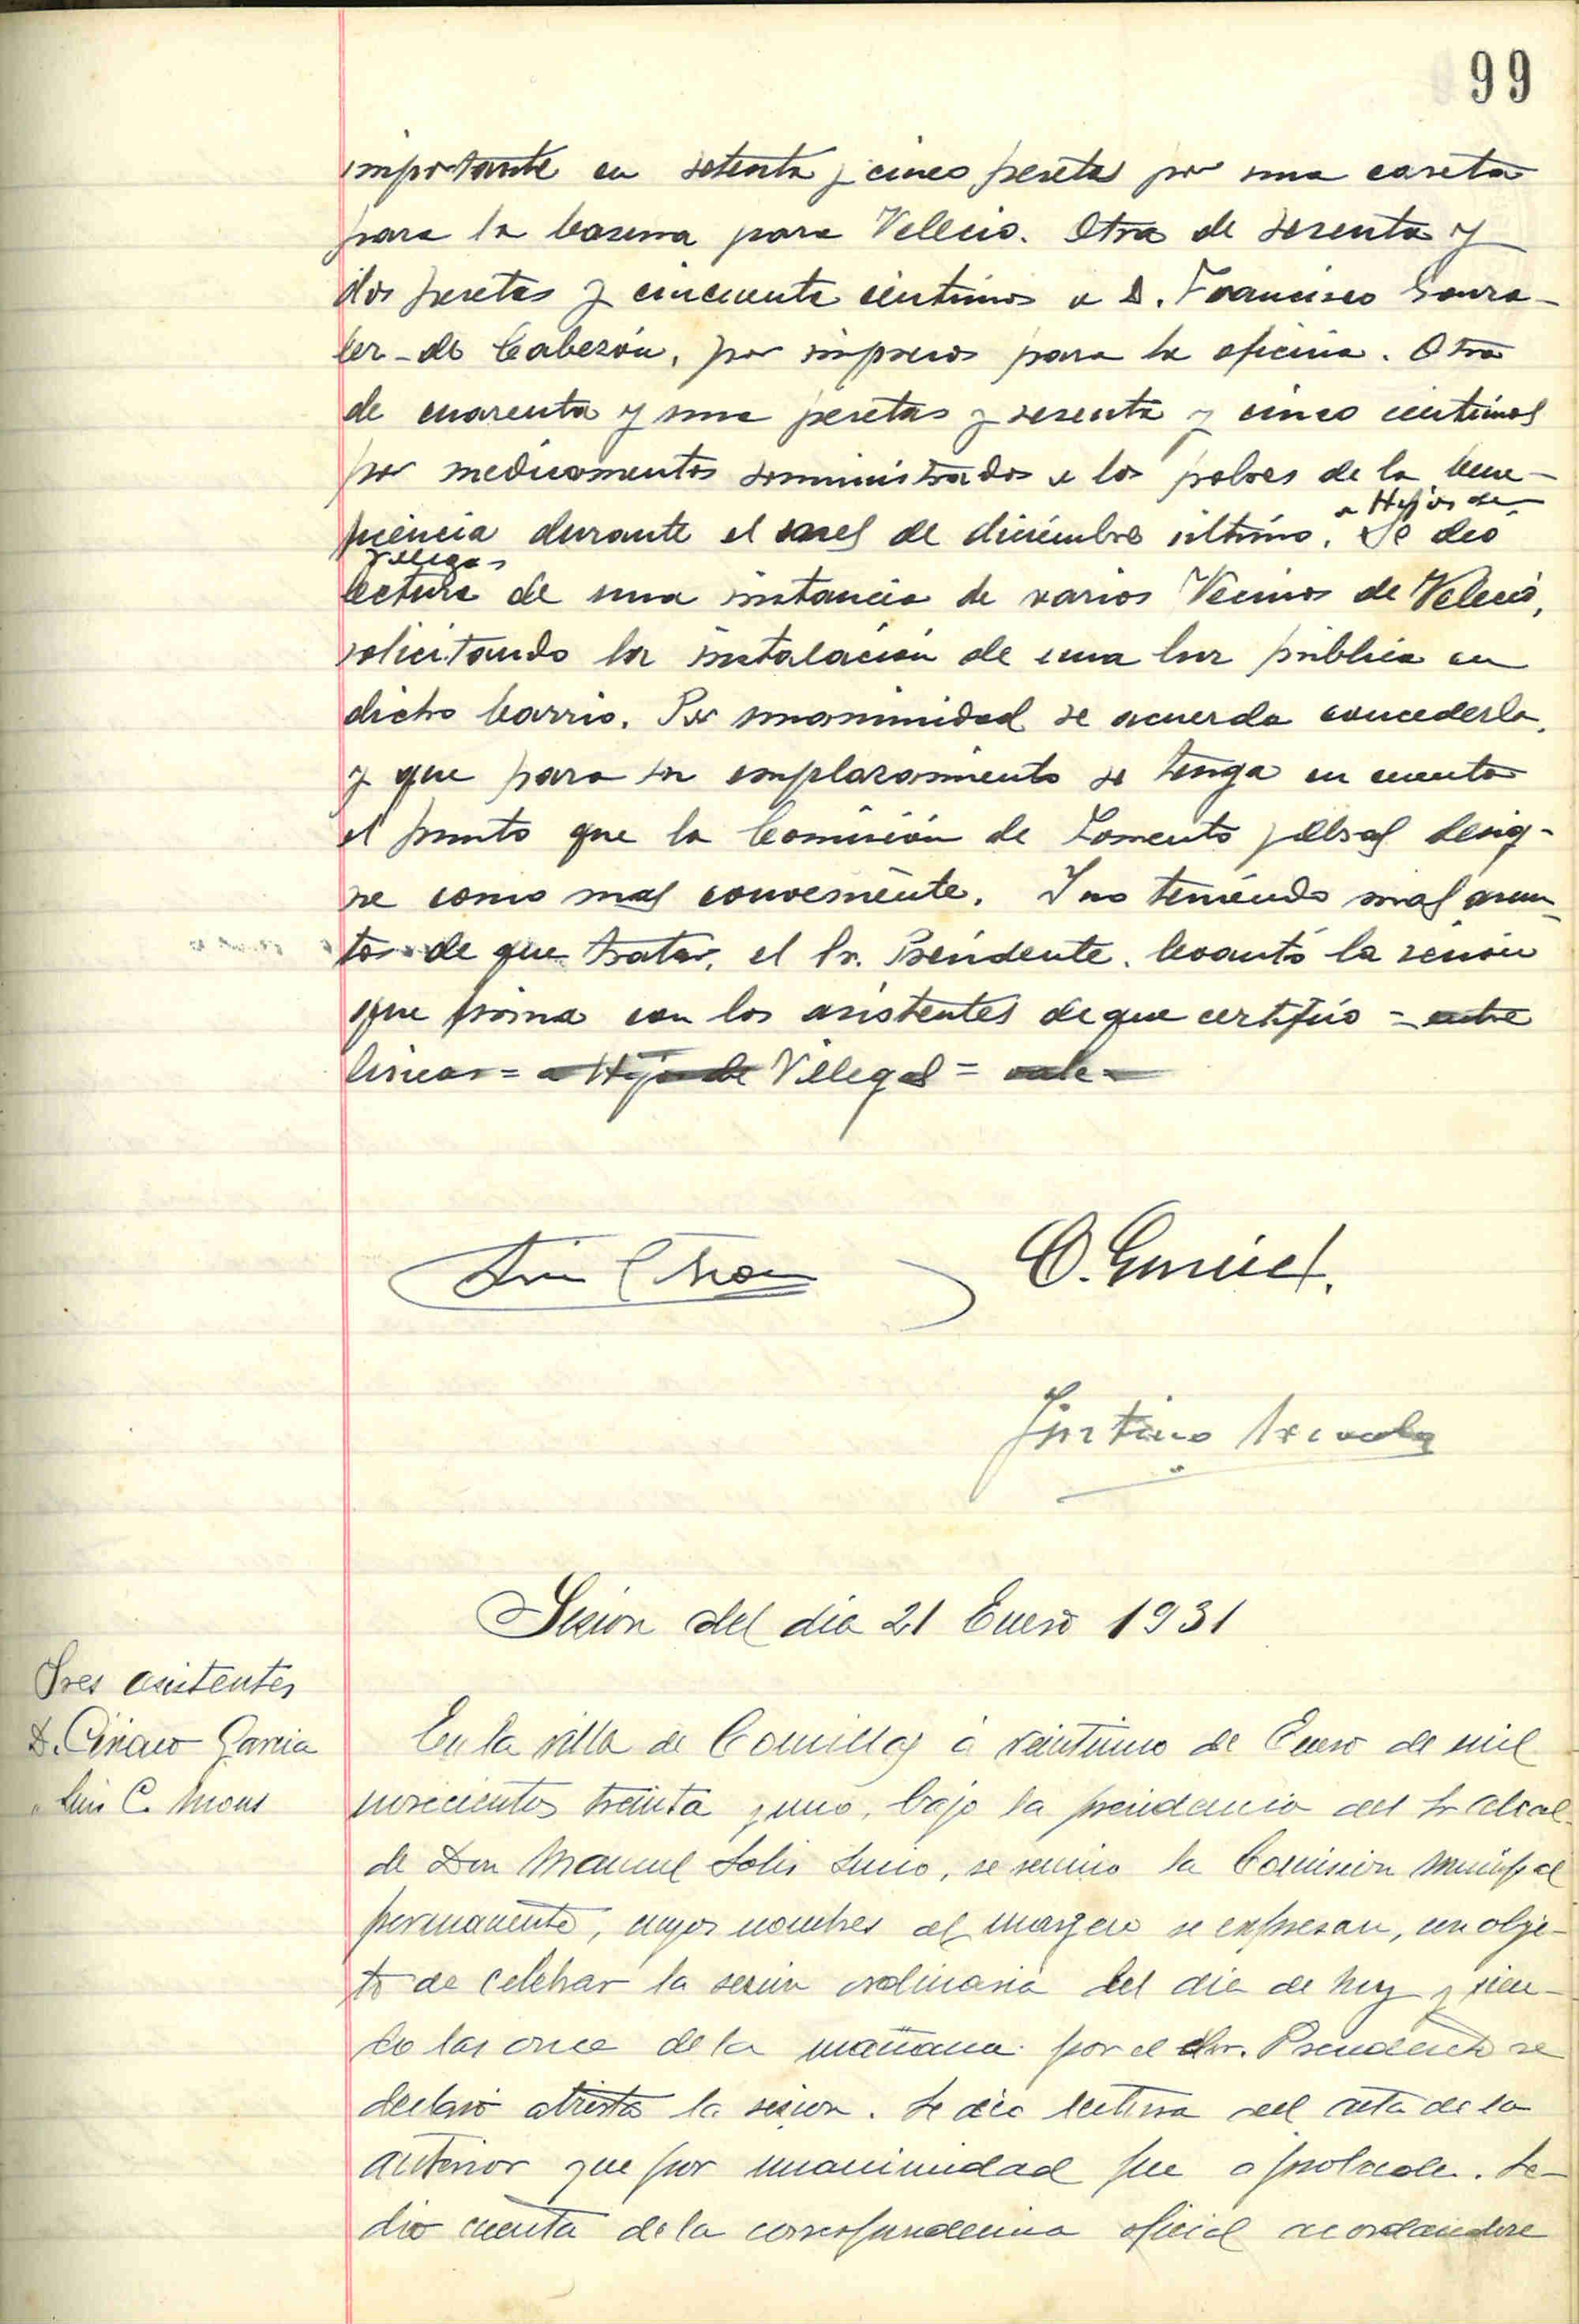 99
importante en setenta y cinco pesetas por una caseta
para la basura para Velecio. Otra de sesenta y
dos pesetas y cincuenta céntimos a D. Francisco Gonza-
lez - de Cabezón, por impresos para la oficina. Otra
de cuarenta y una pesetas y sesenta y cinco centimos
por medicamentos suministrados a los pobres de la bene-
a Hijos de
ficiencia durante el mes de diciembre último. Se dió
Villegas
lectura de una instancia de varios Vecinos de Velecio,
solicitando la instalación de una luz pública en
dicho barrio. Por unanimidad se acuerda concederla,
y que para su emplazamiento se tenga en cuenta
el punto que la Comisión de Fomento y obras desig-
ne como mas conveniente. Y no teniendo mas asun-
tos de que tratar, el Sr. Presidente, levantó la sesión
que firma con los asistentes de que certifico = entre
lineas = a Hijos de Villegas = vale =
Justino
Sesion del dia 21 Enero 1931
Sres asistentes
D. Ciriaco Garcia
" Luis C. Mons
En la villa de Comillas á veintiuno de Enero de mil
novecientos treinta y uno, bajo la presidencia del Sr alcal-
de Don Manuel Solis Lucio, se reunio la Comision Municipal
permanente, cuyos nombres al margen se expresan, con obje-
to de celebrar la sesion ordinaria del dia de hoy y sien-
do las once de la mañana por el Sr. Presidente se
declaró abierta la sesion. Se dió lectura del acta de la
anterior que por unanimidad fue aprobada. Se
dio cuenta de la correspondencia oficial acordandose